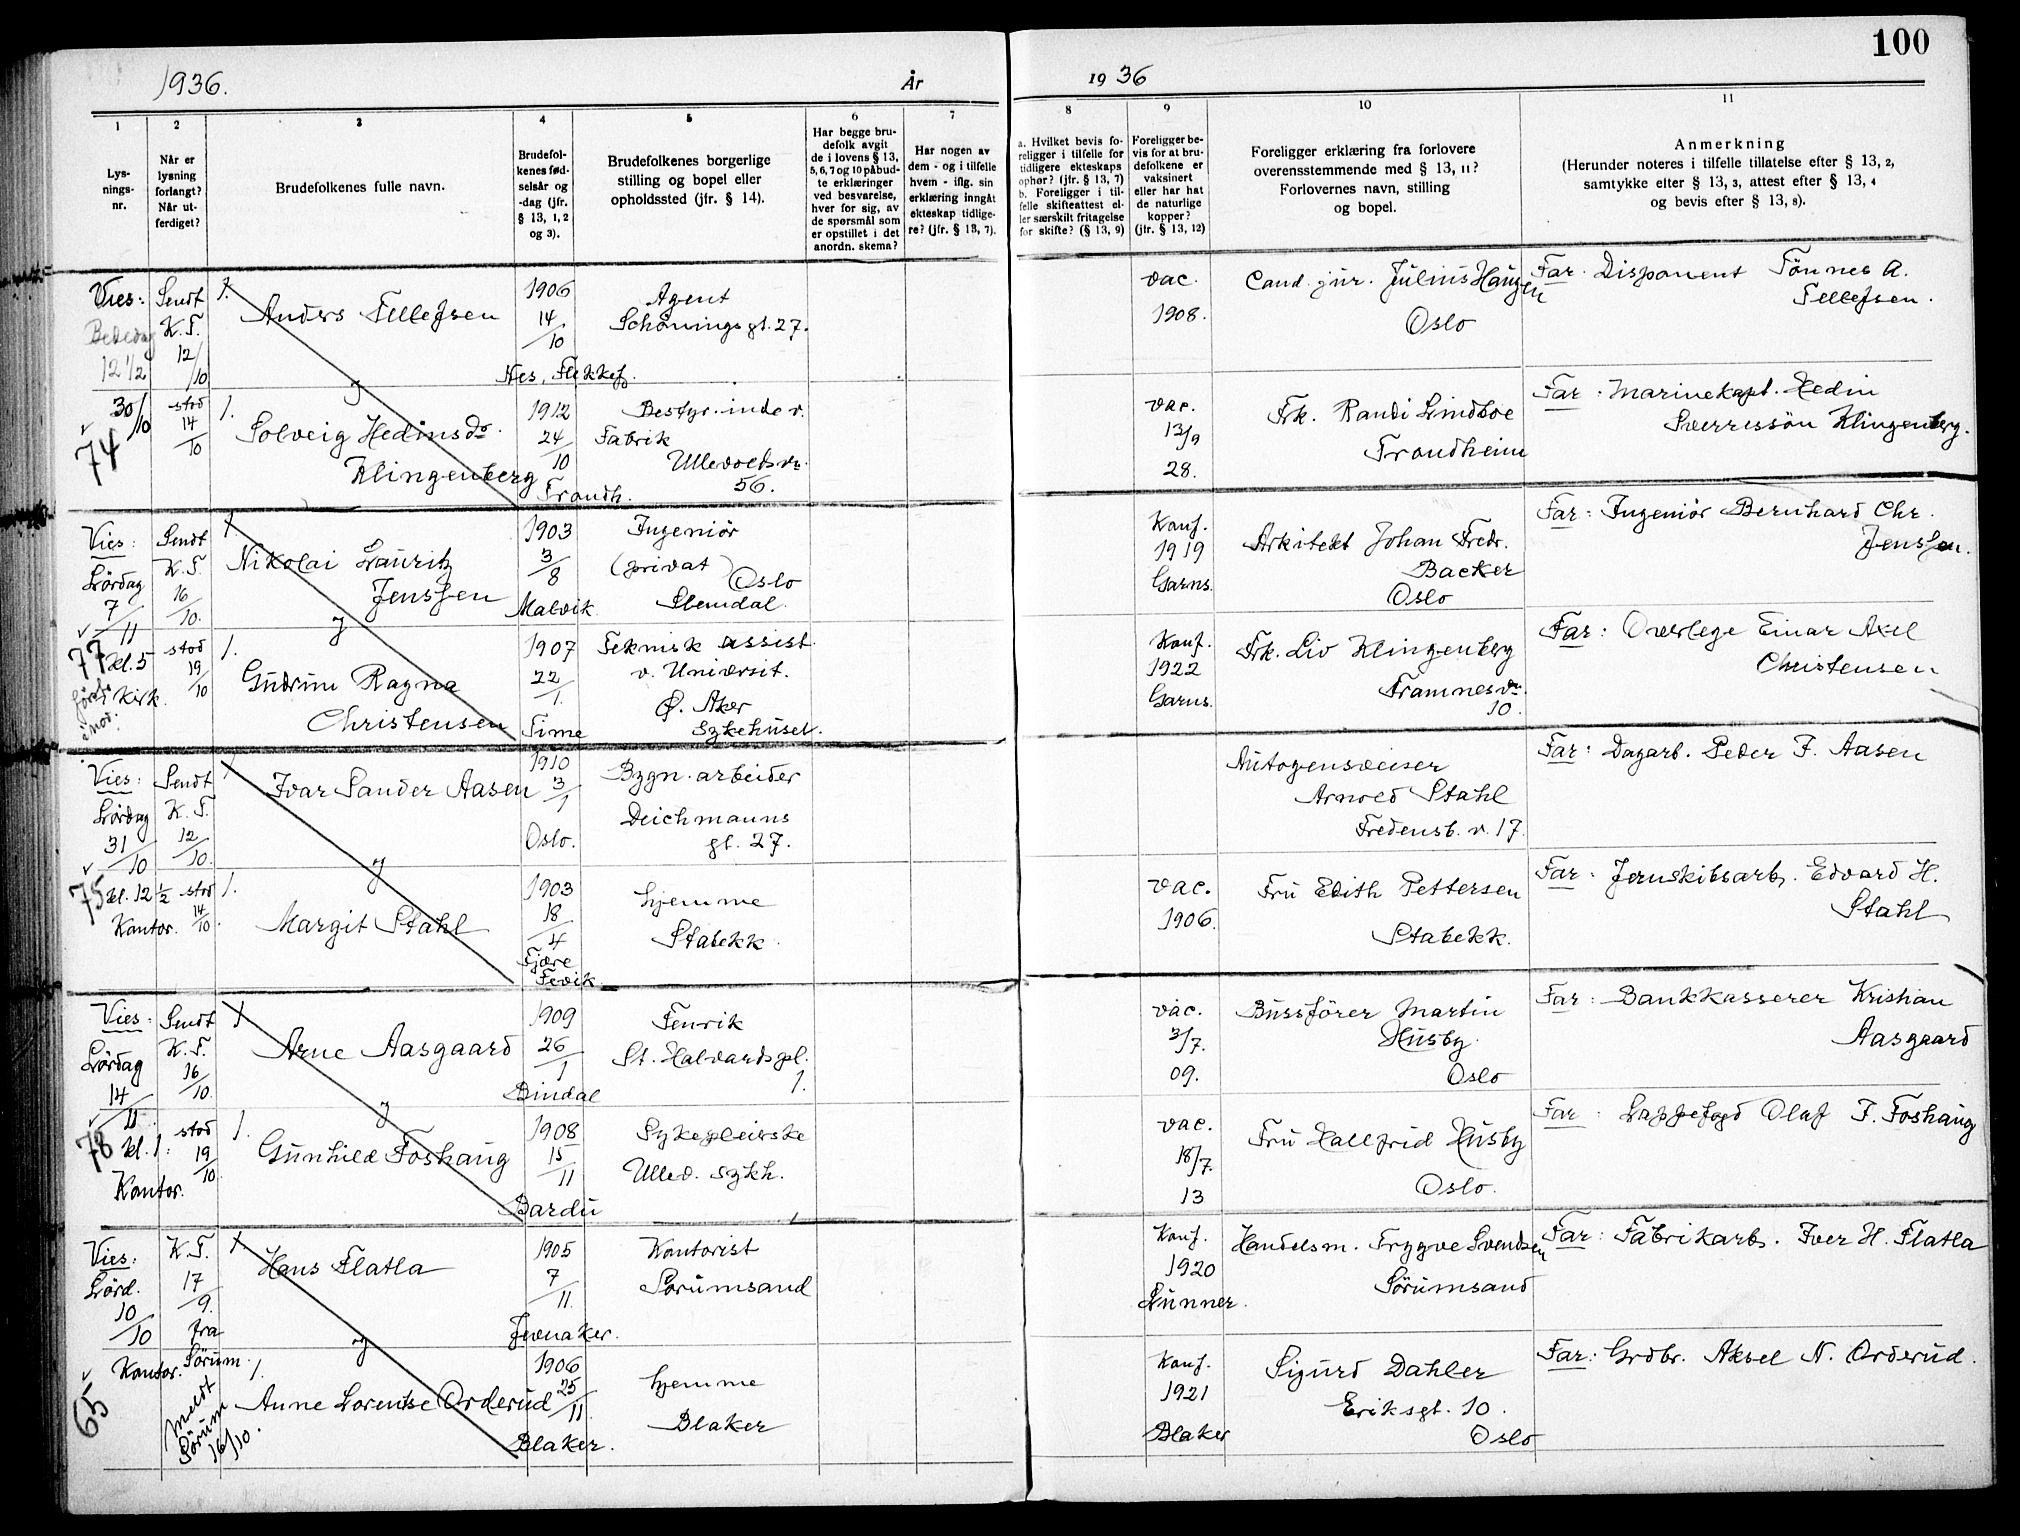 100
1936.
År
19 36
1
2
3
4
5
6
7
8
9
10
11
Lys-
nings-
nr.
Når er
lysning
forlangt?
Når ut-
ferdiget?
Brudefolkenes fulle navn.
Brudefol-
kenes fød-
selsår og
-dag (jfr.
§ 13, 1, 2
og 3).
Brudefolkenes borgerlige
stilling og bopel eller
opholdssted (jfr. § 14).
Har begge bru-
defolk avgit
de i lovens § 13,
5, 6, 7 og 10 påbud-
te erklæringer
ved besvarelse,
hver for sig, av
de spørsmål som
er opstillet i det
anordn. skema?
Har nogen av
dem - og i tilfelle
hvem - iflg. sin
erklæring inngåt
ekteskap tidlige-
re? (jfr. § 13, 7).
a. Hvilket bevis fo-
religger i tilfelle for
tidligere ekteskaps
ophør? (jfr. § 13, 7)
b. Foreligger i til-
felle skifteattest el-
ler særskilt fritagelse
for skifte? (§ 13, 9)
Foreligger be-
vis for at bru-
defolkene er
vaksinert
eller har hat
de naturlige
kopper?
(jfr. § 13, 12)
Foreligger erklæring fra forlovere
overensstemmende med § 13, 11?
Forlovernes navn, stilling
og bopel.
Anmerkning
(Herunder noteres i tilfelle tillatelse efter § 13, 2,
samtykke efter § 13, 3, attest efter § 13, 4
og bevis efter § 13, 8).
Vies:
12 1/2
30/10
74
Sendt
K. T.
12/10
stod
14/10
1.
Anders Tellefsen
1906
14/10
Nes, Flekkef.
Agent
Schønings gt. 27.
vac.
1908.
Cand. jur. Julius Haugen
Oslo
Far: Disponent Tønnes A.
Tellefsen.
og
1.
Solveig Hedinsdr.
Klingenberg
1912
24/10
Trondh.
Bestyr. inde v.
Fabrik
Ullevoldsvn.
56.
vac.
13/9
28.
Frk. Randi Lindboe
Trondheim
Far: Marinekapt. Hedin
Sverressøn Klingenberg.
Vies:
Lørdag
7/11
77
kl. 5
Kirk.
Sendt
K. T.
16/10.
stod
19/10
1
Nikolai Lauritz
Jenssen
1903
3/8
Malvik
Ingeniør
(privat)
Oslo
Slemdal.
Konf.
1919
Garns.
Arkitekt Johan Fredr.
Backer
Oslo
Far: Ingeniør Bernhard Chr.
Jenssen.
og
1.
Gudrun Ragna
Christensen
1907
22/1.
Time
Teknisk assist.
v. Universit.
Ø. Aker
Sykehuset.
Konf.
1922
Garns.
Frk. Liv Klingenberg
Framnesvn.
10.
Far: Overlege Einar Axel
Christensen
Vies:
Lørdag
31/10
75
kl. 12 1/2
Kontor.
Sendt
K. T.
12/10.
stod
14/10.
1
Ivar Sander Aasen
1910
3/1
Oslo.
Bygn. arbeider
Deichmanns
gt. 27.
Autogensveiser
Arnold Stahl
Fredensb. v. 17.
Far: Dagarb. Peder J. Aasen
og
1.
Margit Stahl
1903
18/4
Fjære
Fevik
hjemme
Stabekk.
vac.
1906.
Fru Edith Pettersen
Stabekk.
Far: Jernskibsarb. Edvard H.
Stahl
Vies:
Lørdag
14/11
78
kl. 1.
Kontor.
Sendt
K. T.
16/10.
stod
19/10.
1
Arne Aasgaard
1909
26/1
Bindal
Fenrik
St. Halvardspl.
1.
vac.
3/7.
09.
Bussfører Martin
Husby
Oslo
Far: Bankkasserer Kristian
Aasgaard
og
1.
Gunhild Foshaug
1908
15/11
Bardu
Sykepleierske
Ullev. sykh.
vac.
18/7.
13
Fru Hallfrid Husby
Oslo.
Far: Lappefogd Olaf J. Foshaug
Vies:
Lørd.
10/10
Kontor.
65
K. T.
17/9.
fra
Sørum.
Meldt
Sørum
16/10.
1.
Hans Flatla
1905
7/11.
Jevnaker.
Kontorist
Sørumsand
Konf.
1920
Lunner.
Handelsm. Trygve Svendsen
Sørumsand
Far: Fabrikarb. Iver H. Flatla
og
1.
Anne Lorentse Orderud
1906
25/11.
Blaker.
hjemme
Blaker
Konf.
1921
Blaker
Sigurd Dahler
Eriksgt. 10.
Oslo
Far: Grdbr. Aksel N. Orderud.